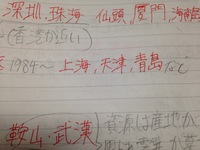 深圳,珠海 仙頭,厦門 海南島
(香港から近い)
1984〜 上海,天津,青島など
鞍山・武漢 資源は産地か